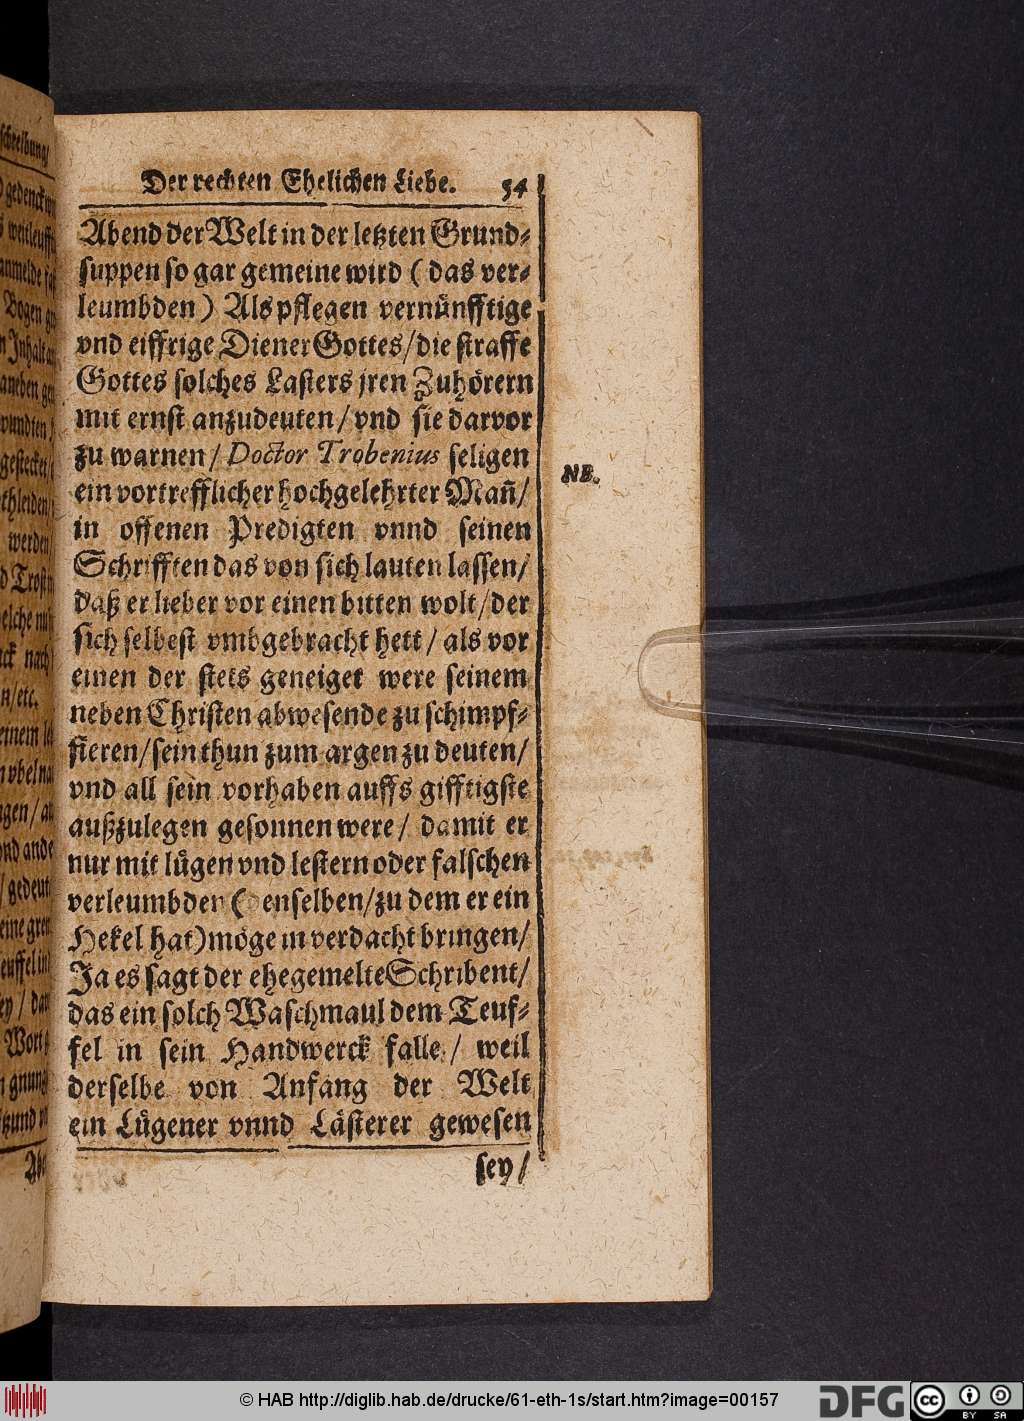 Der rechten Ehelichen Liebe. 54
Abend der Welt in der letzten Grund-
suppen so gar gemeine wird ( das ver-
leumbden ) Als pflegen vernünfftige
vnd eiffrige Diener Gottes/die straffe
Gottes solches Lasters jren Zuhörern
mit ernst anzudeuten/vnd sie darvor
zu warnen/Doctor Trobenius seligen
ein vortrefflicher hochgelehrter Mañ/
in offenen Predigten vnnd seinen
Schrifften das von sich lauten lassen/
daß er lieber vor einen bitten wolt/der
sich selbest vmbgebracht hett/als vor
einen der stets geneiget were seinem
neben Christen abwesende zu schimpf-
fieren/sein thun zum argen zu deuten/
vnd all sein vorhaben auffs gifftigste
außzulegen gesonnen were/ damit er
nur mit lügen vnd lestern oder falschen
verleumbden (denselben/zu dem er ein
Hekel hat)möge in verdacht bringen/
Ja es sagt der ehegemelte Schribent/
das ein solch Waschmaul dem Teuf-
fel in sein Handwerck falle/ weil
derselbe von Anfang der Welt
ein Lügener vnnd Lästerer gewesen
sey/
NB.
scheelbung/
gedenck
weitleuff
anmelde
Bogen
Inhalt
daneben
wundten
gestecket/
werden/
Trost
welche
nach
n/etc.
meinem
vbel
vnd ande
gedeut
eine
Teuffel
ey/ dar
Wort
gnung
© HAB http://diglib.hab.de/drucke/61-eth-1s/start.htm?image=00157
DFG
cc
BY SA